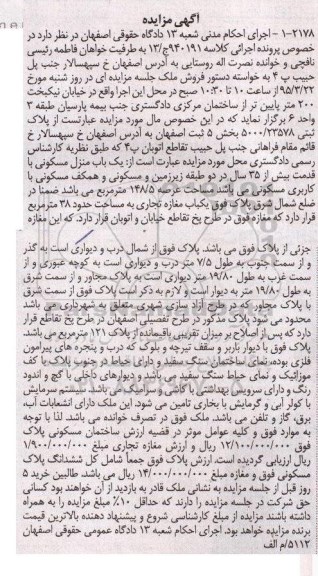 آگهی مزایده
۱-۲۱۷۸- اجرای احکام مدنی شعبه ۱۳ دادگاه حقوقی اصفهان در نظر دارد در
خصوص پرونده اجرائی کلاسه ۹۴۰۱۹۱ج/۱۳ به طرفیت خواهان فاطمه رئیسی
نافچی و خوانده نصرت اله روستایی به آدرس اصفهان خ سپهسالار جنب پل
حبیب پ ۴ به خواسته دستور فروش ملک جلسه مزایده ای در روز شنبه مورخ
۹۵/۳/۲۲ از ساعت ۱۰ تا ۱۰:۳۰ صبح در محل این اجرا واقع در خیابان نیکبخت
۲۰۰ متر پایین تر از ساختمان مرکزی دادگستری جنب بیمه پارسیان طبقه ۳
واحد ۶ برگزار نماید که در این خصوص مال مورد مزایده عبارتست از پلاک
ثبتی ۵۰۰۰/۲۳۵۷۸ بخش ۵ ثبت اصفهان به آدرس اصفهان خ سپهسالار خ
قائم مقام فراهانی جنب پل حبیب تقاطع اتوبان پ۴ که طبق نظریه کارشناس
رسمی دادگستری محل مورد مزایده عبارت است از: یک باب منزل مسکونی با
قدمت بیش از ۳۵ سال در دو طبقه زیرزمین و مسکونی و همکف مسکونی با
کاربری مسکونی می باشد ۱۴۸/۵ مترمربع می باشد ضمنا در
ضلع شمال شرق پلاک فوق یکباب مغازه تجاری به مساحت حدود ۳۸ مترمربع
قرار دارد که مغازه فوق در طرح پخ تقاطع خیابان و اتوبان قرار دارد. که این مغازه
جزئی از پلاک فوق می باشد. پلاک فوق از شمال درب و دیواری است به گذر
و از سمت جنوب به طول ۷/۵ متر درب و دیواری است به کوچه عبوری و از
سمت غرب به طول ۱۹/۸۰ متر دیواری است به پلاک مجاور و از سمت شرق
به طول ۱۹/۸۰ متر به دیوار است و لازم به ذکر است پلاک فوق از سمت شرق
با پلاک مجاور که در طرح آزاد سازی شهری متعلق به شهرداری می باشد
محدود می شود پلاک مذکور در طرح تفصیلی اصفهان در طرح پخ تقاطع قرار
دارد که پس از اصلاح بر میزان تقریبی باقیمانده از پلاک ۱۲۱ مترمربع می باشد.
پلاک فوق با دیوار باربر و سقف تیرچه و بلوک که درب و پنجره های پیرامون
فلزی بوده، نمای ساختمان سنگ سفید و دارای حیاط در جنوب پلاک با کف
موزائیک و نمای حیاط سنگ سفید می باشد و دیوارهای داخل با گچ و اندود
رنگ و دارای سرویس بهداشتی با کاشی دیواری می باشد. سیستم سرمایش
با کولر آبی و گرمایش با بخاری تامین می شود. این ملک دارای انشعابات آب،
برق، گاز و تلفن می باشد. ملک فوق در تصرف خوانده می باشد. لذا با توجه
به موارد فوق و کلیه عوامل موثر در قضیه ارزش ساختمان مسکونی پلاک
فوق ۱۲/۱۰۰/۰۰۰/۰۰۰ ریال و ارزش مغازه تجاری مبلغ ۱/۹۰۰/۰۰۰/۰۰۰
ریال ارزیابی گردیده است. ارزش پلاک فوق جمعاً شامل کل ششدانگ پلاک
مسکونی فوق و مغازه مبلغ ۱۴/۰۰۰/۰۰۰/۰۰۰ ریال می باشد. طالبین خرید ۵
روز قبل از جلسه مزایده به نشانی ملک قادر به بازدید از آن خواهند بود کسانی
حق شرکت در جلسه مزایده را دارند که حداقل ۱۰٪ مبلغ مزایده را به همراه
داشته باشند مزایده از مبلغ کارشناسی شروع و پیشنهاد دهنده بالاترین قیمت
برنده مزایده خواهد بود. اجرای احکام شعبه ۱۳ دادگاه عمومی حقوقی اصفهان
۵۱۱۲/م الف